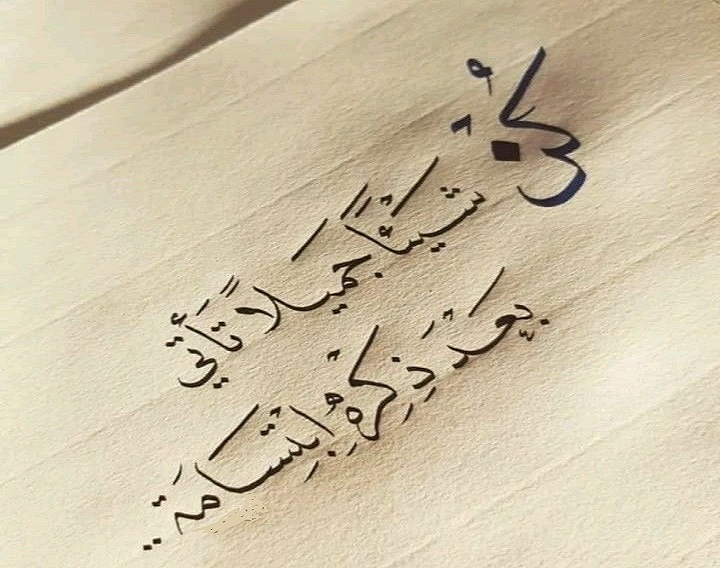 كُنْ
شَيْئًا جَمِيلاً تَأْتِي
بَعْدَ ذِكْرِهِ إِبْتِسَامَة..